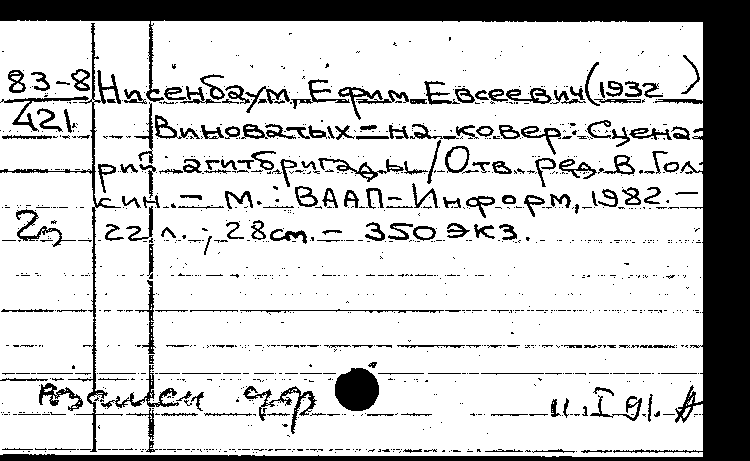 83-8 Нисенбаум, Ефим Евсеевич (1932 )
421 Виноватых - на ковер: Сцена-
рий агитбригады / Отв. ред. В. Гол-
син. - М.: ВААП-Информ, 1982. -
22 л.; 28 cm. - 350 экз.
взамен
11.I 91.